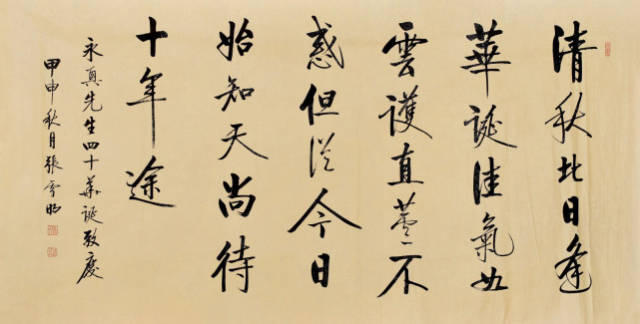 清秋此日逢
華誕佳氣如
雲護直不
惑但從今日
始知天尚待
十年途
永真先生四十華誕致慶
甲申秋月張雪